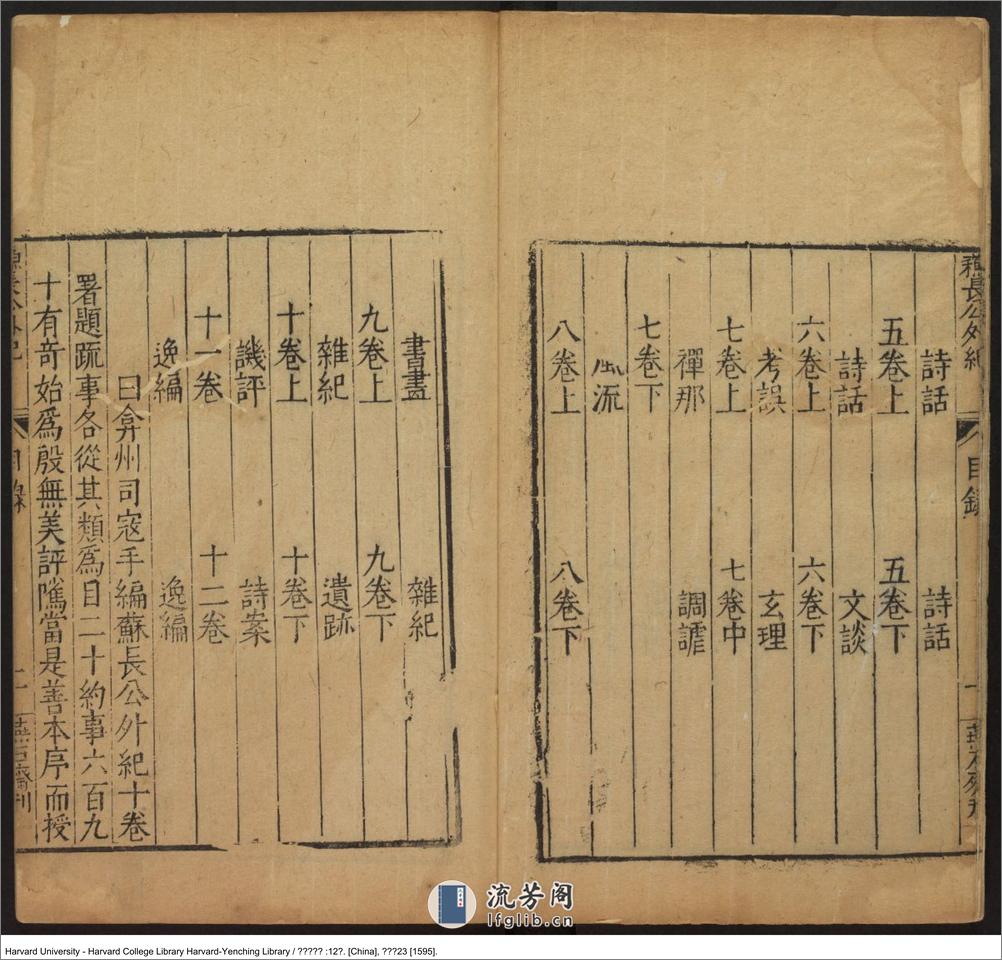 蘇長公外紀 目錄 一
詩話 詩話
五卷上 五卷下
詩話 文談
六卷上 六卷下
考誤 玄理
七卷上 七卷中
禪那 調謔
七卷下
風流
八卷上 八卷下
書畫 雜紀
九卷上 九卷下
雜紀 遺跡
十卷上 十卷下
譏評 詩案
十一卷 十二卷
逸編 逸編
曰弇州司寇手編蘇長公外紀十卷
署題䟽事各從其類爲目二十約事六百九
十有奇始爲殷無美評隲當是善本序而授
長公外紀 目錄 二 燕石齋刊
流芳阁
lfglib.cn
Harvard University - Harvard College Library Harvard-Yenching Library / ????? :12?. [China], ???23 [1595].